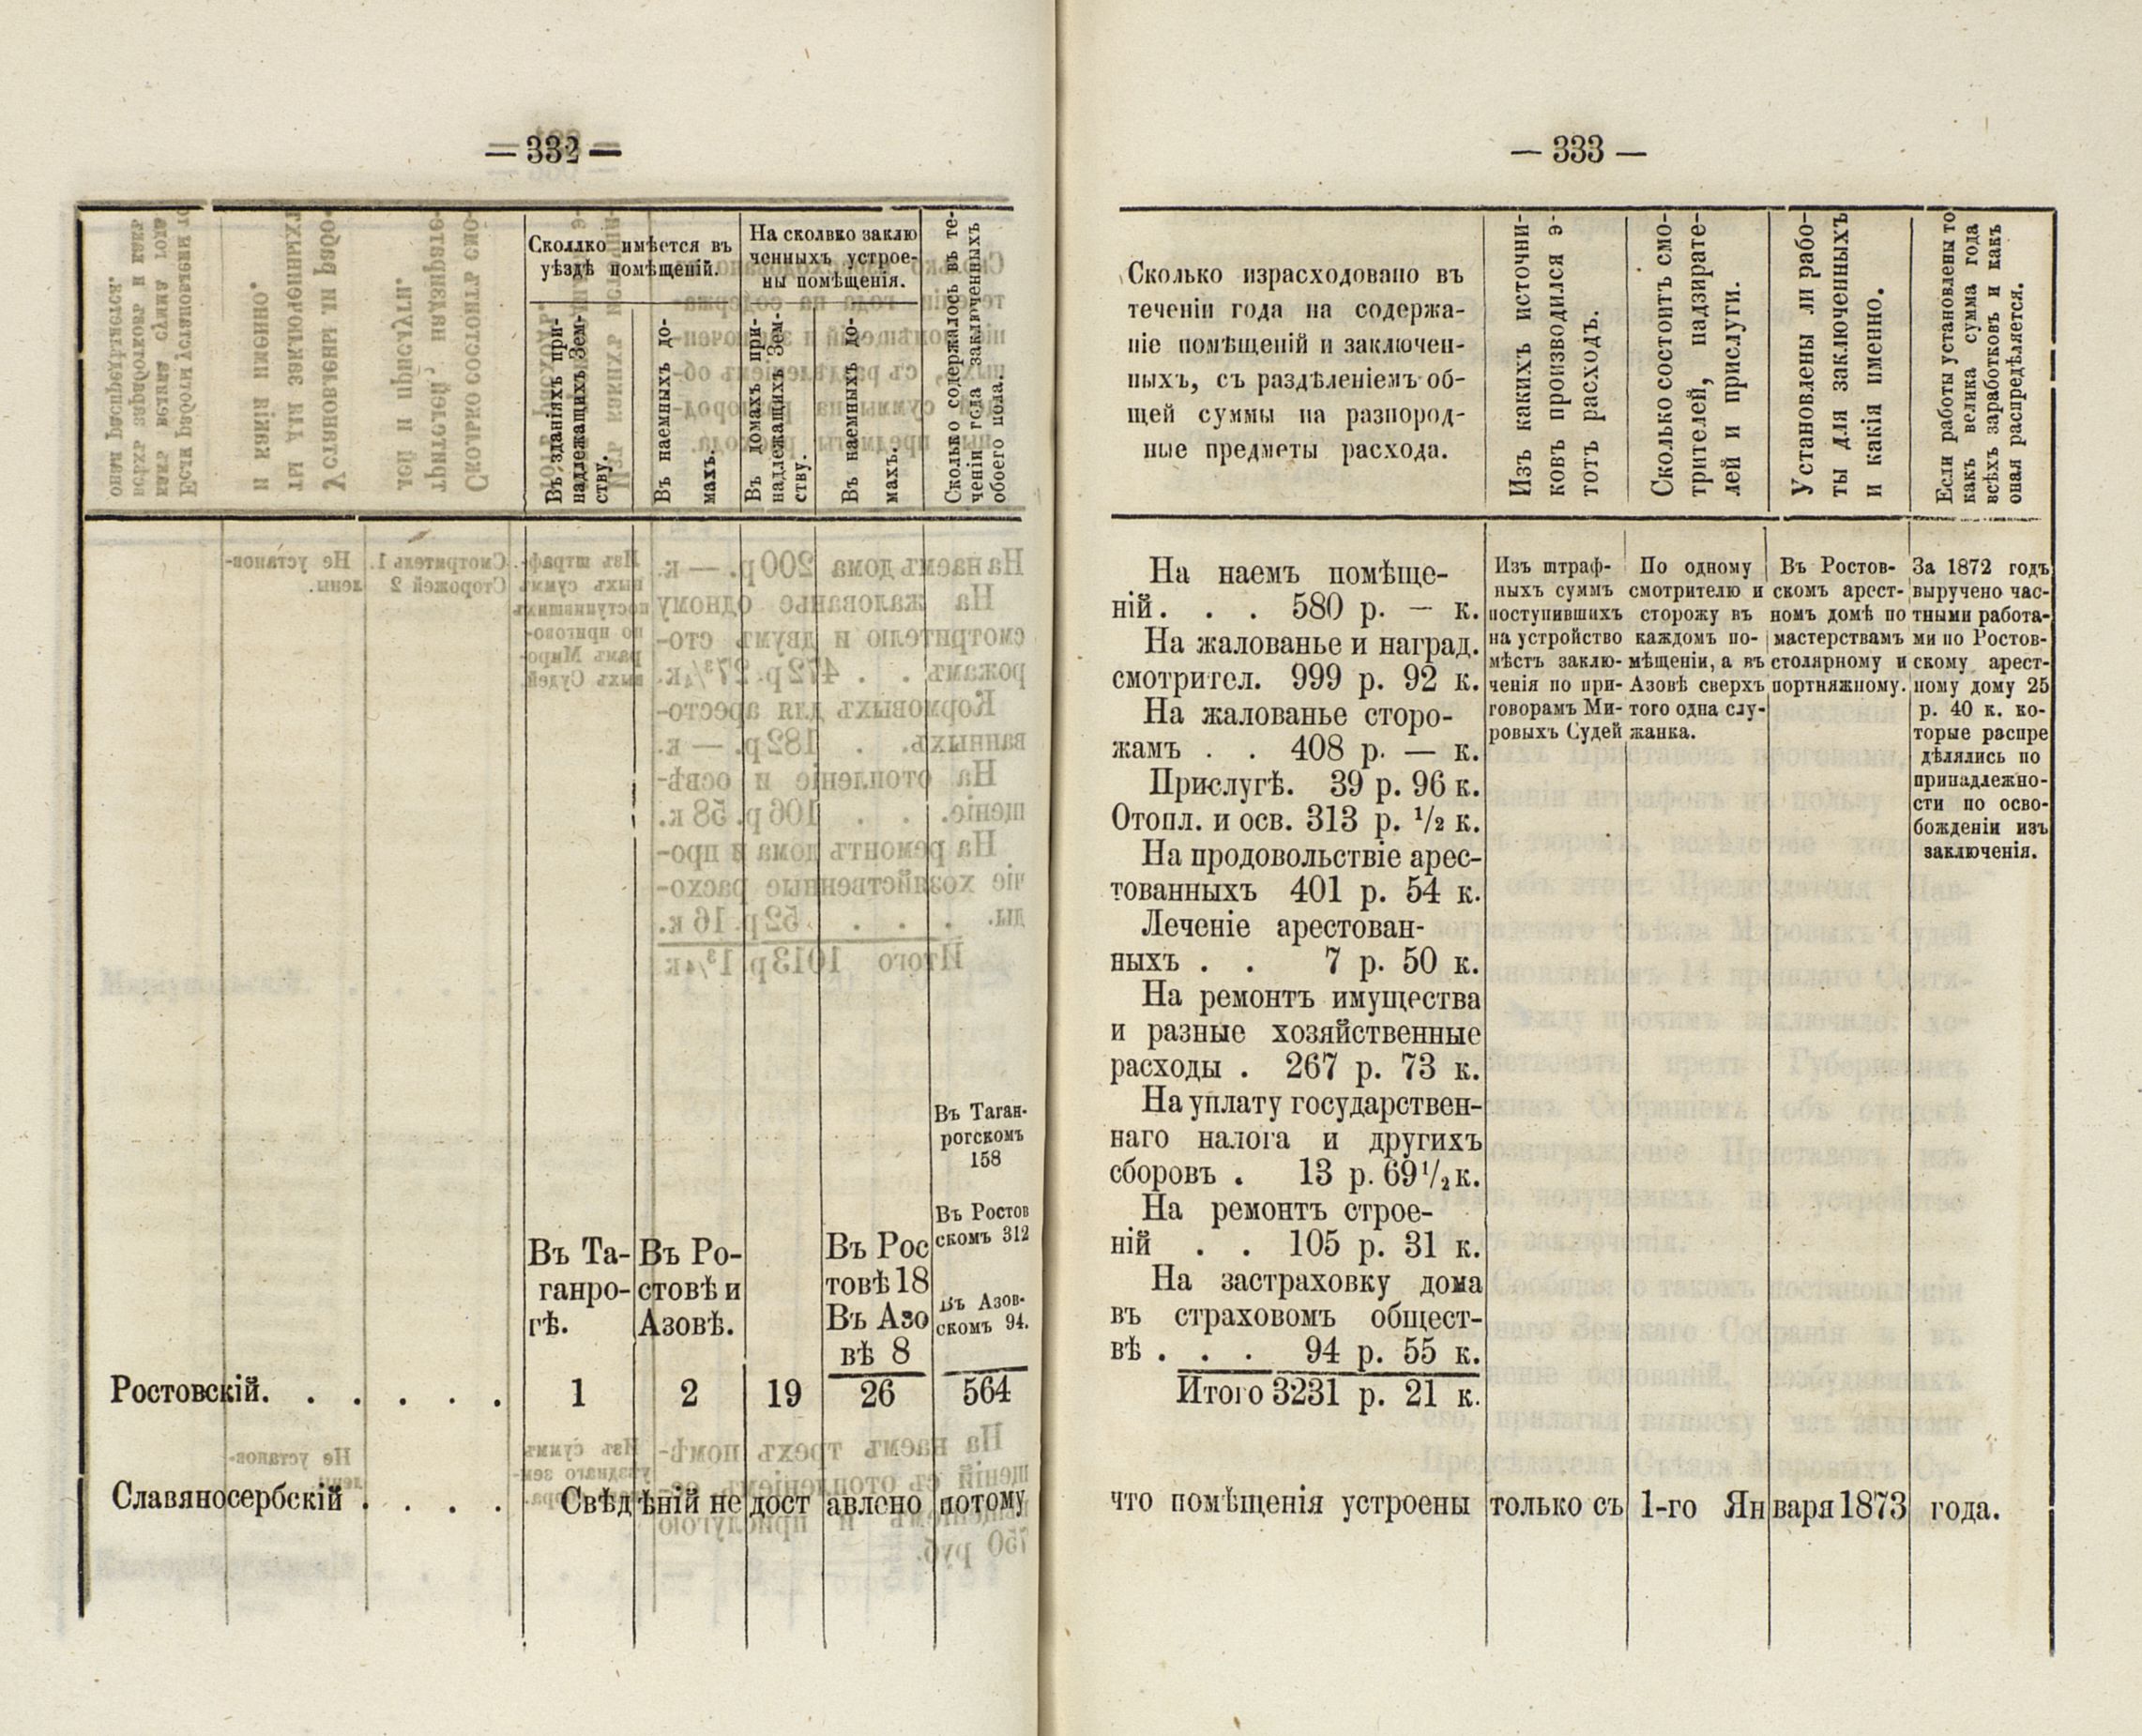 — 332 —
Сколлко имѣется въ
уѣздѣ помѣщеній.
На сколвко заклю
ченныхъ устрое-
ны помѣщенія.
Въ зданіяхъ при-
надлежащихъ Зем-
ству.
Въ наемныхъ до-
махъ.
Въ домахъ при-
надлежащихъ Зем-
ству.
Въ наемныхъ до-
махъ.
Сколько содержалось въ те-
ченіи года заключенныхъ
обоего пола.
Въ Таган-
рогскомъ
158
Въ Ростов
скомъ 312
Въ Азов-
скомъ 94.
Въ Та-
ганро-
гѣ.
Въ Ро-
стовѣ и
Азовѣ.
Въ Рос
товѣ 18
Въ Азо
вѣ 8
Ростовскій. . . . . . 1 2 19 26 564
Славяносербскій . . . . Свѣдѣній не доставлено потому
— 333 —
Сколько израсходовано въ
теченіи года на содержа-
ніе помѣщеній и заключен-
ныхъ, съ раздѣленіемъ об-
щей суммы на разнород-
ные предметы расхода.
Изъ какихъ источни-
ковъ производился э-
тотъ расходъ.
Сколько состоитъ смо-
трителей, надзирате-
лей и прислуги.
Установлены ли рабо-
ты для заключенныхъ
и какія именно.
Если работы установлены то
какъ велика сумма года
всѣхъ заработковъ и какъ
оная распредѣляется.
На наемъ помѣще-
ній. . . 580 р. — к.
На жалованье и наград.
смотрител. 999 р. 92 к.
На жалованье сторо-
жамъ . . 408 р. — к.
Прислугѣ. 39 р. 96 к.
Отопл. и осв. 313 р. ½ к.
На продовольствіе арес-
тованныхъ 401 р. 54 к.
Леченіе арестован-
ныхъ . . 7 р. 50 к.
На ремонтъ имущества
и разные хозяйственные
расходы . 267 р. 73 к.
На уплату государствен-
наго налога и другихъ
сборовъ . 13 р. 69½ к.
На ремонтъ строе-
ній . . 105 р. 31 к.
На застраховку дома
въ страховомъ общест-
вѣ . . . 94 р. 55 к.
Итого 3231 р. 21 к.
Изъ штраф-
ныхъ суммъ
поступившихъ
на устройство
мѣстъ заклю-
ченія по при-
говорамъ Ми-
ровыхъ Судей
По одному
смотрителю и
сторожу въ
каждомъ по-
мѣщеніи, а въ
Азовѣ сверхъ
того одна слу-
жанка.
Въ Ростов-
скомъ арест-
номъ домѣ по
мастерствамъ
столярному и
портняжному.
За 1872 годъ
выручено час-
тными работа-
ми по Ростов-
скому арест-
ному дому 25
р. 40 к. ко-
торые распре
дѣлялись по
принадлежно-
сти по осво-
божденіи изъ
заключенія.
что помѣщенія устроены только съ 1-го Января 1873 года.